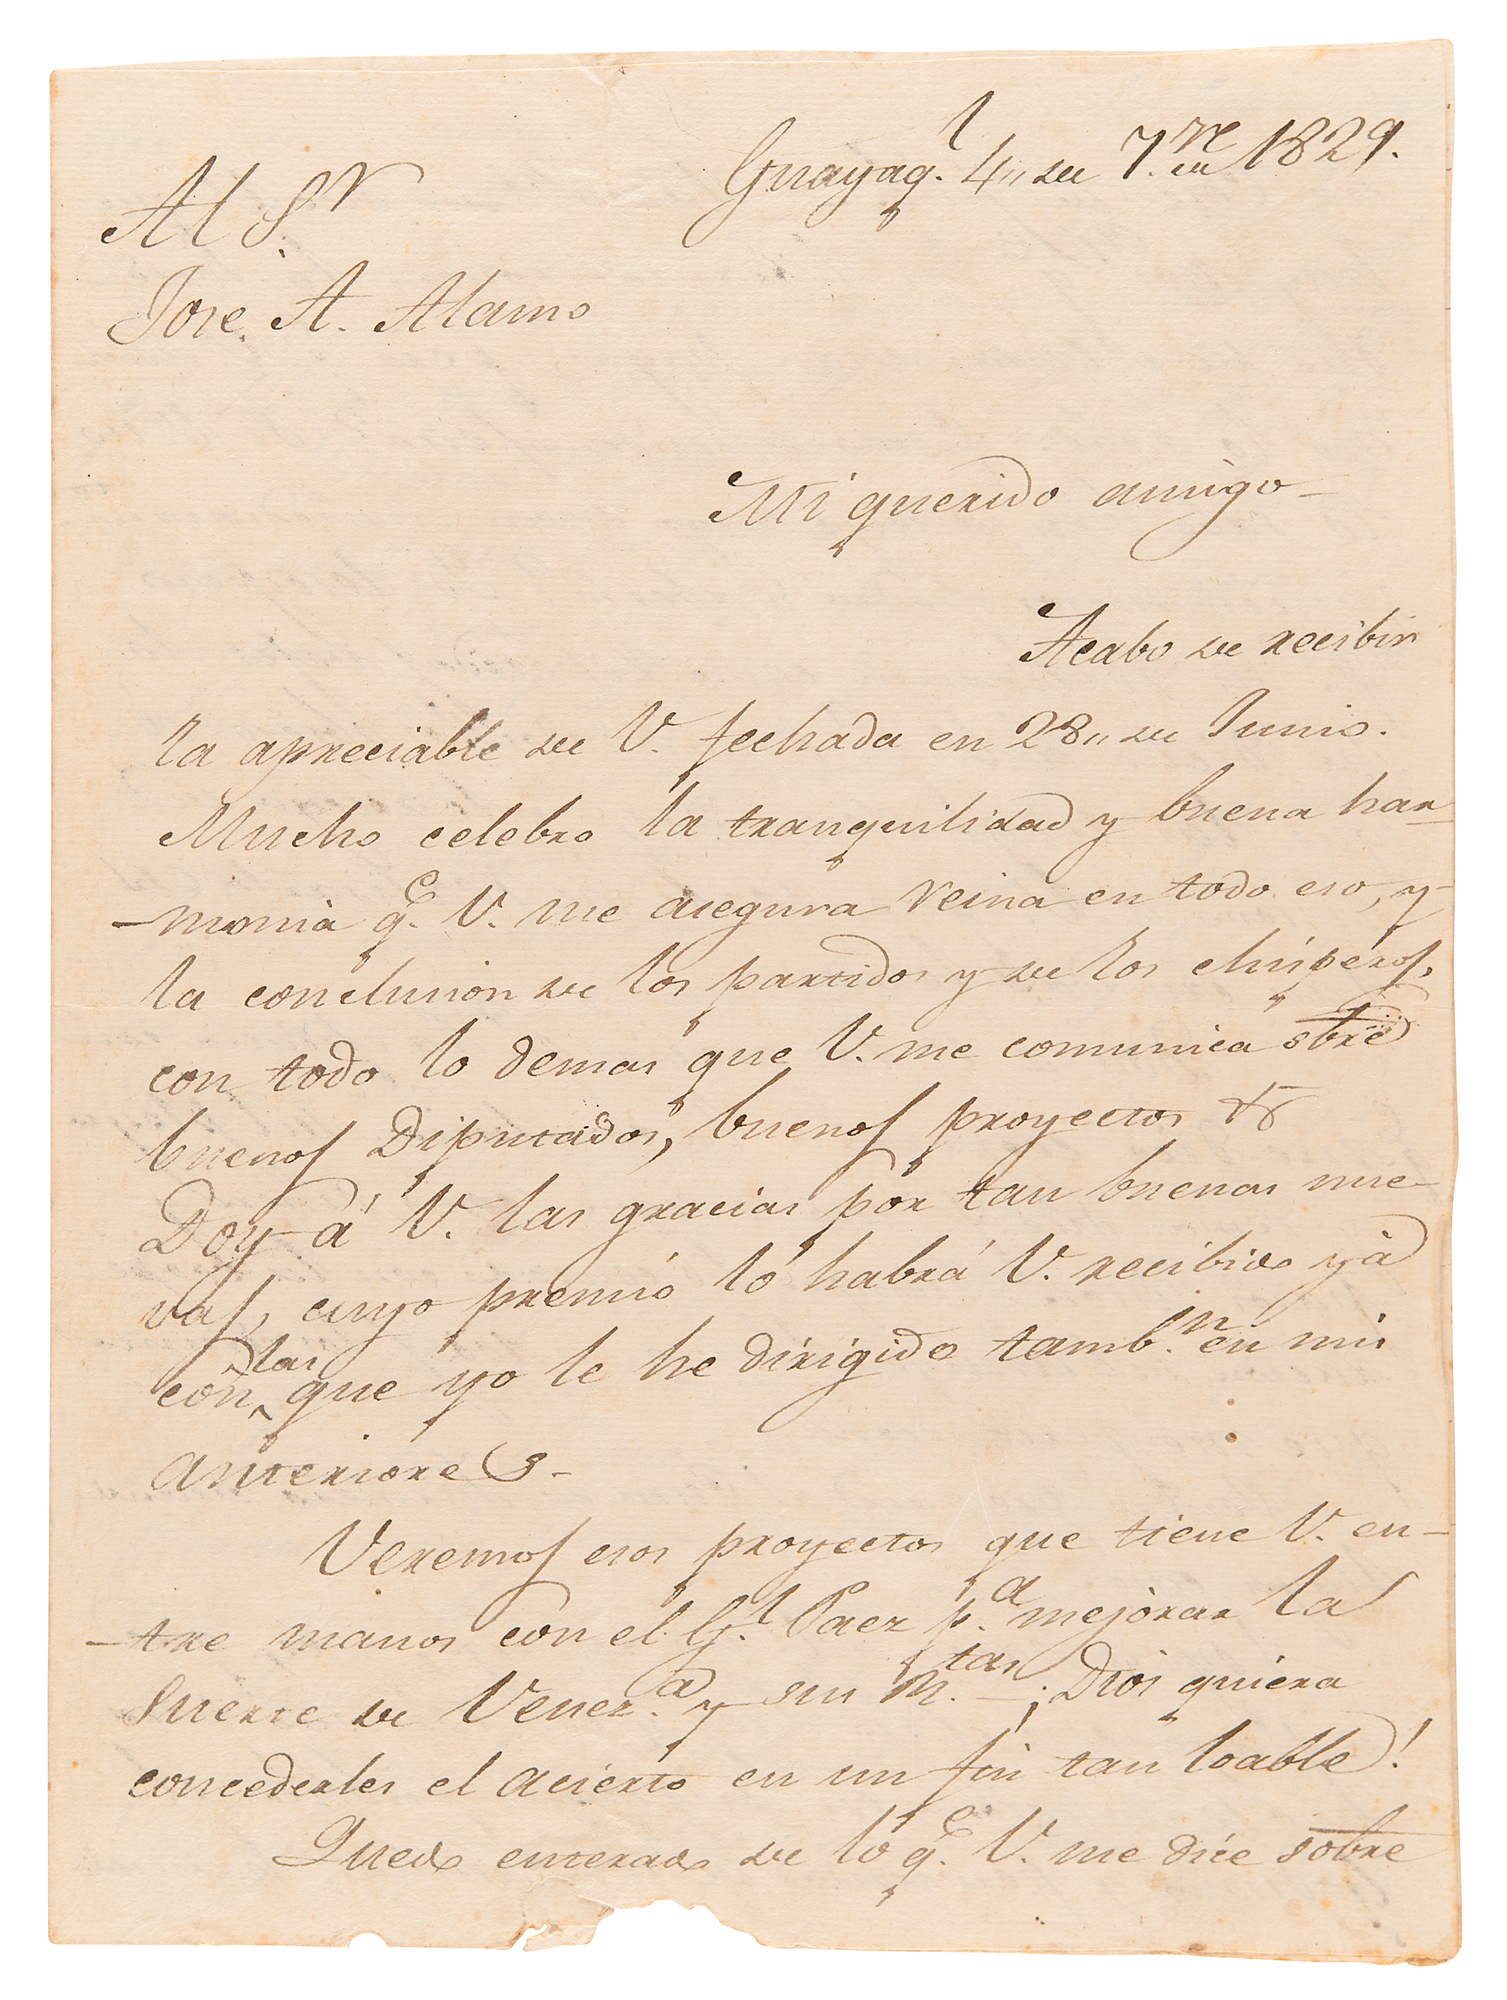 Guayaq.l 4,, de 7.re de 1829.
Al S.r
Jose. A. Alamo
Mi querido amigo_
Acabo de recibir
la apreciable de V. fechada en 28,, de Junio.
Mucho celebro la tranquilidad y buena har_
_monia q.e V. me asegura reina en todo eso, y
la conclusion de los partidos y de los chisperos,
con todo lo demas que V. me comunica sbre
buenos Diputados, buenos proyectos &
Doy á V. las gracias por tan buenas nue_
vas, cuyo premio lo habrá V. recibido yá
con las que yo le he dirigido tamb.n en mis
anteriores_
Veremos esos proyectos que tiene V. en_
_tre manos con el G.l Paez p.a mejorar la
suerte de Venez.a y sus m.tas_ ¡Dios quiera
concederles el acierto en un fin tan loable!
Quedo enterado de lo q.e V. me dice sobre